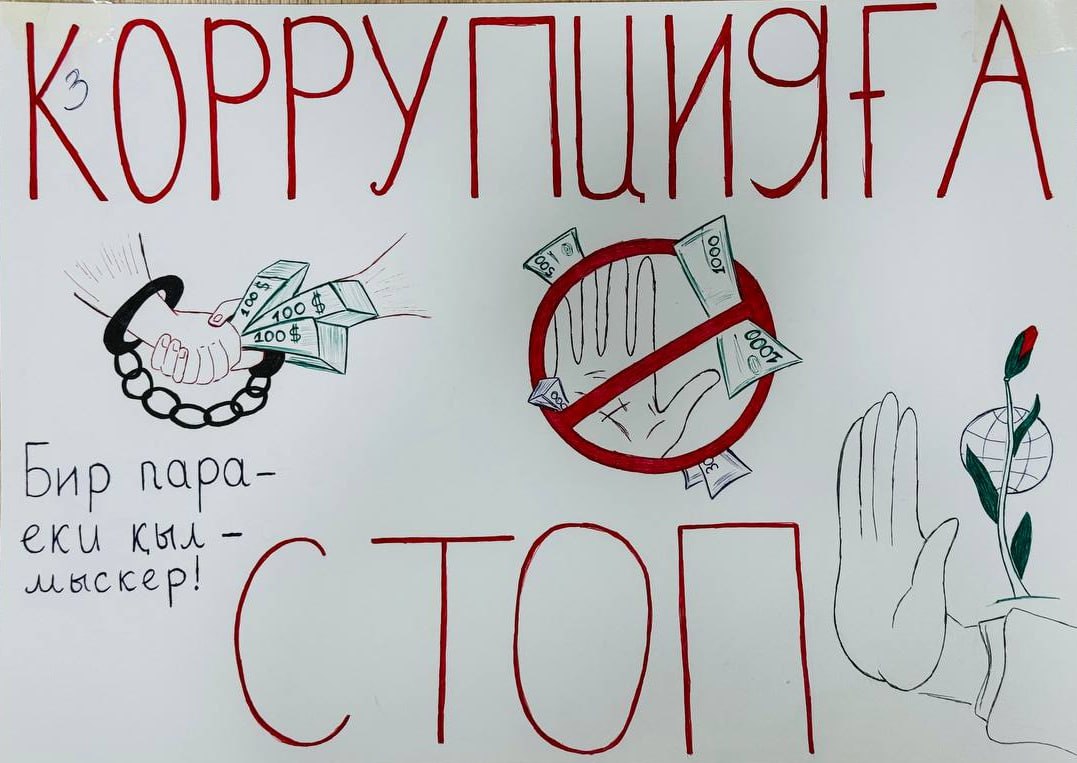 КОРРУПЦИЯҒА
3
100$
100$
100$
500
1000
1000
Бир пара-
еки қыл-
мыскер!
СТОП